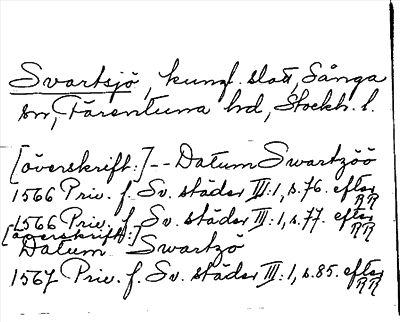 Svartsjö, kungl. slott, Sånga
sn, Färentuna hd, Stockh. l.
[överskrift:] -- Datum Swartzöö
1566 Priv. f. Sv. städer III:1, s. 76. efter RR
1566 Priv. f. Sv. städer III:1, s. 77. efter RR
[överskrift:]
Datum Swartzö
1567 Priv. f. Sv. städer III:1, s. 85. efter RR